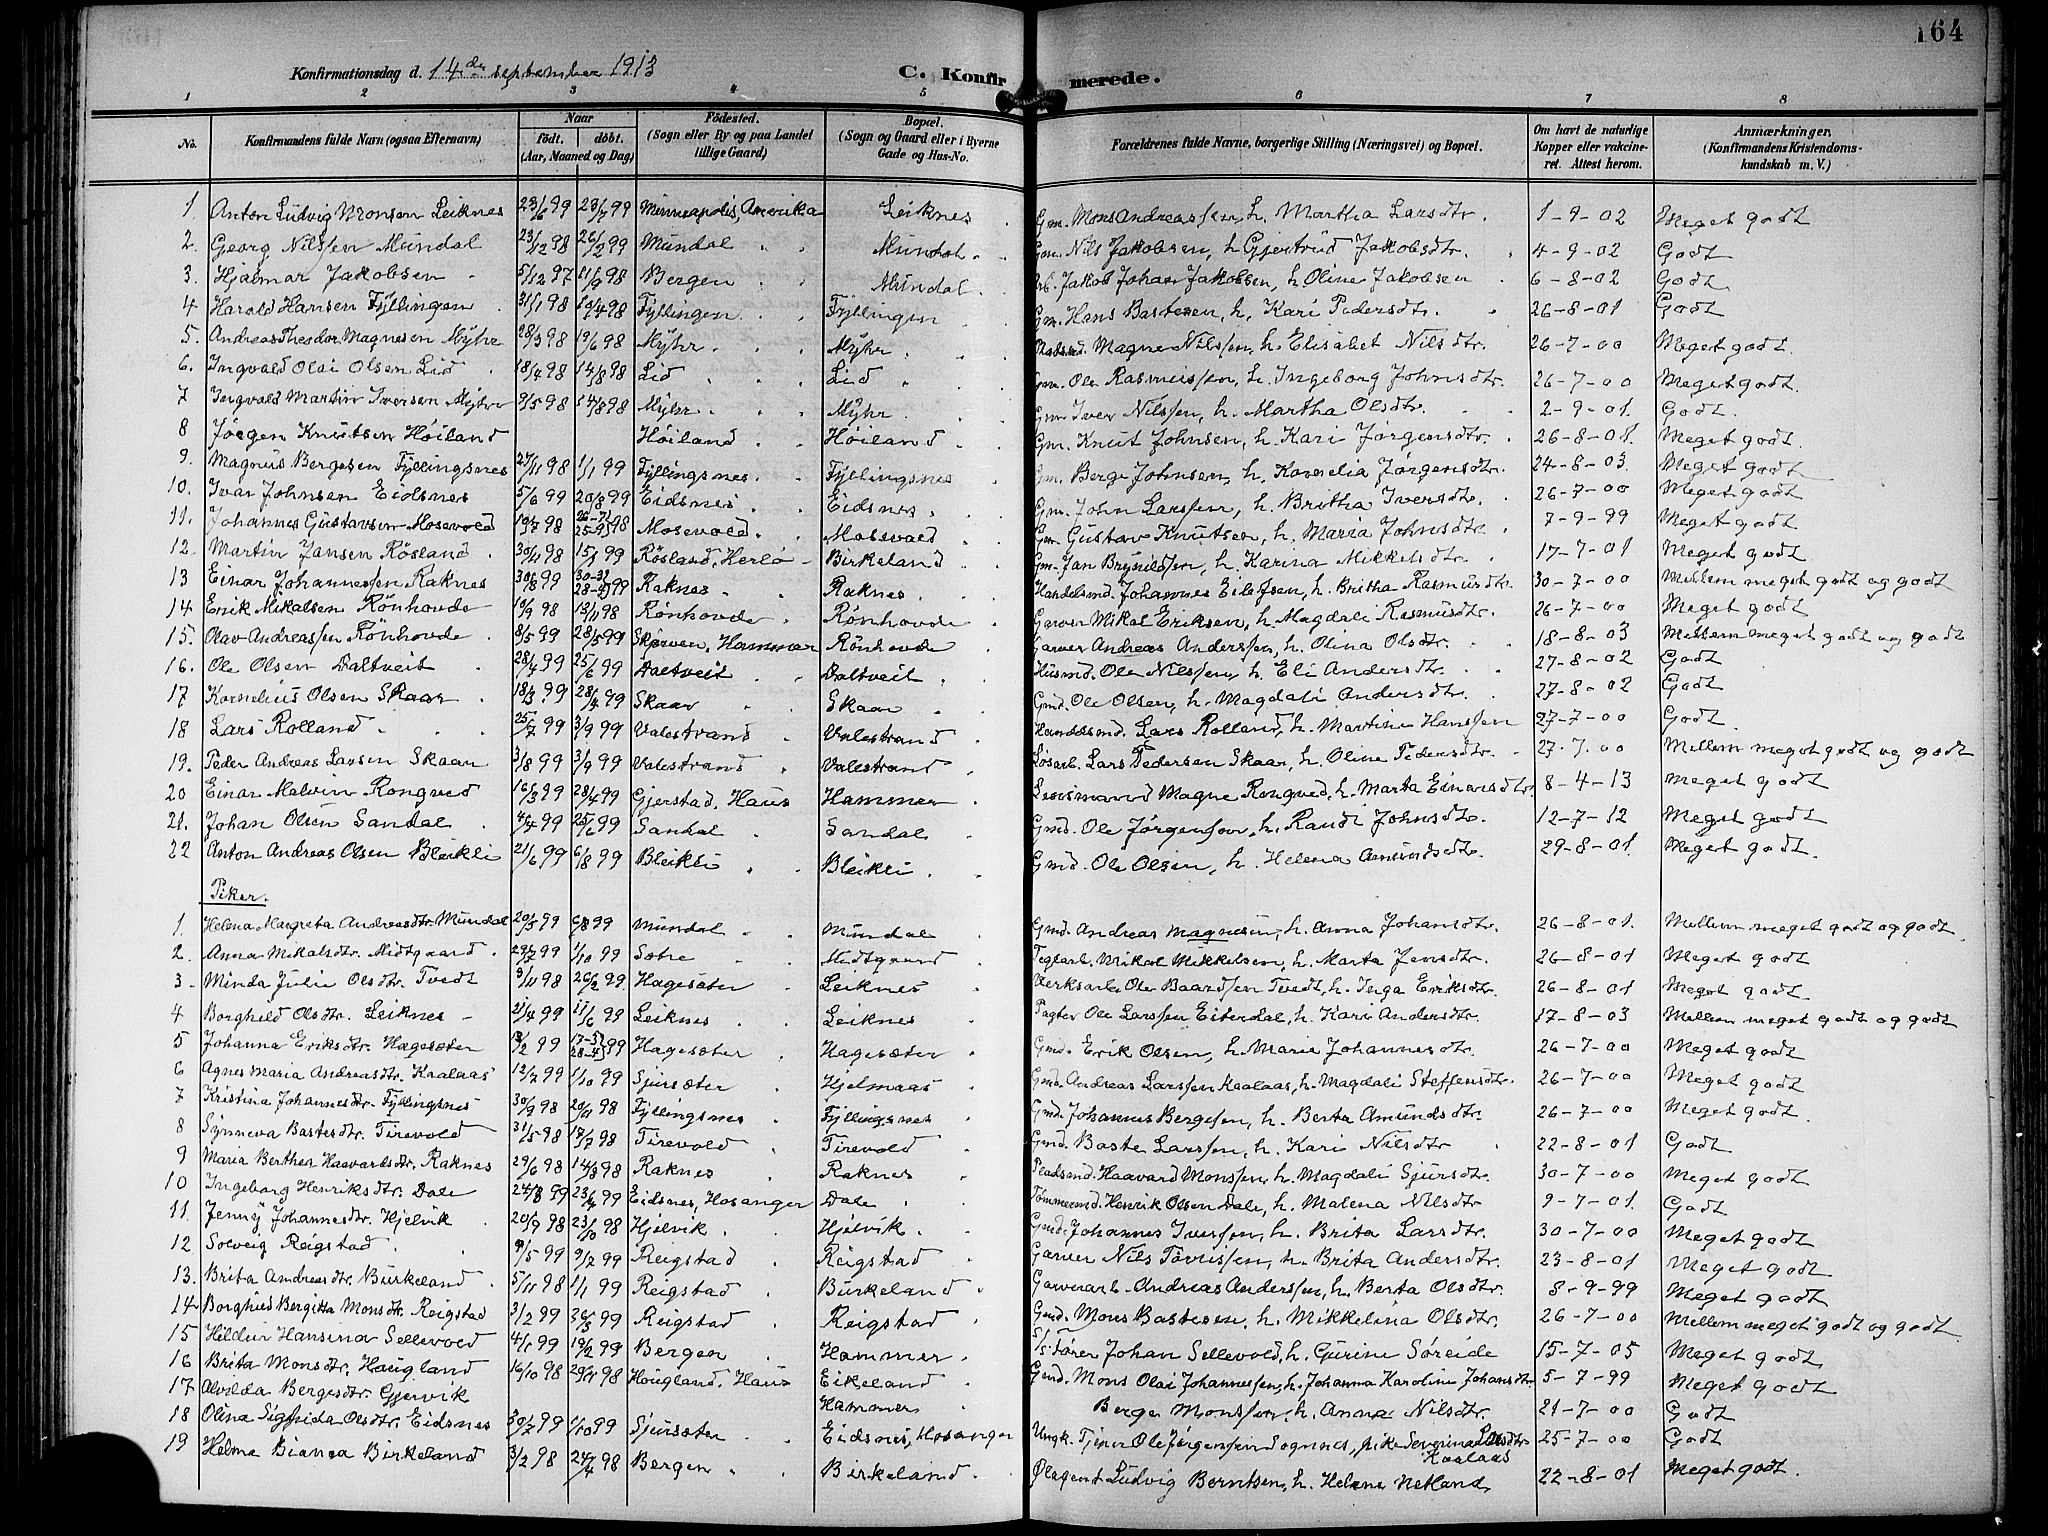 164
Konfirmationsdag d. 14de september 1913
C. Konfirmerede.
1 2 3 4 5 6 7 8
No. Konfirmandens fulde Navn (ogsaa Efternavn) Naar født. døbt. (Aar, Maaned og Dag) Fødested. (Sogn eller By og paa Landet tillige Gaard) Bopæl. (Sogn og Gaard eller i Byerne Gade og Hus-No. Forældrenes fulde Navne, borgerlige Stilling (Næringsvei) og Bopæl. Om havt de naturlige Kopper eller vakcineret. Attest herom. Anmærkninger. (Konfirmandens Kristendomskundskab m. V.)
1. Anton Ludvig Monsen Leiknes 23/6 99 23/7 99 Minneapolis, Amerika Leiknes Gm. Mons Andreassen, h. Martha Larsdtr. 1-9-02 Meget godt
2. Georg Nilssen Mundal 23/12 98 26/2 99 Mundal Mundal Gm. Nils Jakobsen, h. Gjertrud Jakobsdtr. 4-9-02 Godt
3. Hjalmar Jakobsen 5/12 97 11/9 98 Bergen Mundal Arb. Jakob Johan Jakobsen, h. Oline Jakobsen 6-8-02 Godt
4 Harald Hansen Fyllingen 31/1 98 10/4 98 Fyllingen Fyllingen Gm. Hans Bastesen, h. Kari Pedersdtr. 26-8-01 Godt
5. Andreas Theodor Magnesen Myhr 28/3 98 19/6 98 Myhr Myhr Pladsmd. Magne Nilssen, h. Elisabet Nilsdtr. 26-7-00 Meget godt.
6. Ingvald Olai Olsen Lid 18/4 98 14/8 98 Lid Lid Gm. Ole Rasmussen, h. Ingeborg Johnsdtr. 26-7-00 Meget godt.
7 Ingvald Martin Iversen Myhr 9/5 98 14/8 98 Myhr Myhr Gm. Iver Nilssen, h. Martha Olsdtr. 2-9-01. Godt.
8 Jørgen Knutsen Høiland Høiland Høiland Gm. Knut Johnsen, h. Kari Jørgensdtr. 26-8-01. Meget godt.
9. Magnus Bergesen Fyllingsnes 27/11 98 1/1 99 Fyllingsnes Fyllingsnes Gm. Berge Johnsen, h. Kornelia Jørgensdtr. 24-8-03. Meget godt
10. Ivar Johnsen Eidsnes 5/6 99 20/8 99 Eidsnes Eidsnes Gm. John Larssen, h. Britha Iversdtr. 26-7-00 Meget godt
11. Johannes Gustavsen Mosevold 19/7 98 26-7/25-9 98 Mosevold Mosevold Gm. Gustav Knutsen, h. Maria Johnsdtr. 7-9-99 Meget godt
12 Martin Jansen Røsland 30/11 98 15/1 99 Røsland, Herlø Birkeland Gm. Jan Brynildsen, h. Karina Mikkelsdtr. 17-7-01 Meget godt
13 Einar Johannessen Raknes 99 99 Raknes Raknes Handelsmd. Johannes Eilefsen, h. Britha Rasmusdtr. 30-7-00 Mellem meget godt og godt
14 Erik Mikalsen Rønhovde 19/9 98 13/11 98 Rønhovde Rønhovde Garver Mikal Eriksen, h. Magdali Rasmusdtr. 26-7-00 Meget godt
15. Olav Andreassen Rønhovde 8/5 99 28/5 99 Skjerven, Hammer Rønhovde Garver Andreas Anderssen, h. Olina Olsdtr. 18-8-03 Mellem meget godt og godt
16. Ole Olsen Daltveit 28/4 99 25/6 99 Daltveit Daltveit Husmd. Ole Nilssen, h. Eli Andersdtr. 27-8-02 Godt
17 Kornelius Olsen Skaar 18/3 99 28/4 99 Skaar Skaar Gmd. Ole Olsen, h. Magdali Andersdtr. 27-8-02 Godt
18 Lars Rolland 25/7 99 3/9 99 Valestrand Valestrand Handelsmd. Lars Rolland, h. Martine Hanssen 27-7-00 Godt
19. Peder Andreas Larsen Skaar 3/8 99 3/9 99 Valestrand Valestrand Løsarb. Lars Pedersen Skaar, h. Oline Pedersdtr. 27-7-00 Mellem meget godt og godt
20 Einar Malvin Rongved 16/3 99 28/4 99 Gjerstad, Haus Hammer Magne Rongved, h. Marta Einarsdtr. 8-4-13 Meget godt
21. Johan Olsen Sandal 4/4 99 25/6 99 Sandal Sandal Gmd. Ole Jørgensen, h. Randi Johnsdtr. 12-7-12 Meget godt
22 Anton Andreas Olsen Bleikli 21/6 99 6/8 99 Bleikli Bleikli Gmd. Ole Olsen, h. Helena Amundsdtr. 29-8-01. Meget godt.
Piker.
1. Helena Margreta Andreasdtr. Mundal 20/5 99 6/8 99 Mundal Mundal Gmd. Andreas Magnesen, h. Anna Johansdtr. 26-8-01. Mellem meget godt og godt
2. Anna Mikalsdtr. Midtgaard 29/7 99 1/10 99 Sætre Midtgaard Teglarb. Mikal Mikkelsen, h. Marta Jensdtr. 26-8-01 Meget godt
3 Minda Julie Olsdtr. Tvedt 3/11 98 26/2 99 Hagesæter Leiknes Verksarb. Ole Baardsen Tvedt, h. Inga Eriksdtr. 26-8-01 Meget godt
4 Borghild Olsdtr. Leiknes 21/4 99 11/6 99 Leiknes Leiknes Pagter Ole Larssen Eiterdal, h. Kari Andersdtr. 17-8-03 Mellem meget godt og godt
5 Johanna Eriksdtr. Hagesæter 99 99 Hagesæter Hagesæter Gmd. Erik Olsen, h. Maria Johannesdtr. 26-7-00 Meget godt
6 Agnes Maria Andreasdtr. Kaalaas 12/7 99 1/10 99 Sjursæter Hjelmaas Gmd. Andreas Larssen Kaalaas, h. Magdali Steffensdtr. 26-7-00 Meget godt
7 Kristina Johannesdtr. Fyllingsnes 30/9 98 20/11 98 Fyllingsnes Fyllingsnes Gmd. Johannes Bergesen, h. Berta Amundsdtr. 26-7-00 Meget godt
8 Synneva Bastesdtr. Tirevold 31/5 98 17/7 98 Tirevold Tirevold Gmd. Baste Larssen, h. Kari Nilsdtr 22-8-01 Godt
9 Maria Berthea Haavardsdtr. Raknes 29/6 98 14/8 98 Raknes Raknes Pladsmd. Haavard Monssen, h. Magdali Sjursdtr. 30-7-00 Meget godt
10 Ingeborg Henriksdtr. Dale 99 23/4 99 Eidsnes, Hosanger Dale Tømmermd. Henrik Olsen Dale, h. Malena Nilsdtr 9-7-01. Godt
11. Jenny Johannesdtr. Hjelvik 20/9 98 23/10 98 Hjelvik Hjelvik Gmd. Johannes Iversen, h. Brita Larsdtr. 30-7-00 Meget godt
12 Solveig Reigstad 9/5 99 9/7 99 Reigstad Reigstad Garver Nils Tørrissen, h. Brita Andersdtr. 23-8-01 Meget godt
13. Brita Andreasdtr. Burkeland 5/11 98 1/1 99 Reigstad Burkeland Garverarb. Andreas Anderssen, h. Berta Olsdtr. 8-9-99 Meget godt
14 Borghild Bergitta Monsdtr. Reigstad 3/2 99 26/3 99 Reigstad Reigstad Gmd. Mons Bastesen, h. Mikkelina Olsdtr. 26-7-00 Mellem meget godt og godt
15 Hildur Hansina Sellevold 4/1 99 19/2 99 Bergen Hammer S/s fører Johan Sellevold, h. Gurine Søreide 15-7-05 Meget godt
16 Brita Monsdtr. Haugland 16/10 98 20/11 98 Haugland, Haus Eikeland Gmd. Mons Olai Johannessen, h. Johanna Karoline Johansdtr. 5-7-99 Meget godt
17 Alvilda Bergesdtr. Gjervik Hammer Berge Monssen, h. Anna Nilsdtr. 21-7-00 Godt
18 Olina Sigfrida Olsdtr. Eidsnes 30/7 99 1/10 99 Sjursæter Eidsnes, Hosanger Ungk. Tjener Ole Jørgensen Sognnes, pike Severina Larsdtr Kaalaas 25-7-00 Godt
19 Helma Bianca Birkeland 3/2 98 24/4 98 Bergen Birkeland Ølagent Ludvig Berntsen, h. Helene Netland 22-8-01 Meget godt.